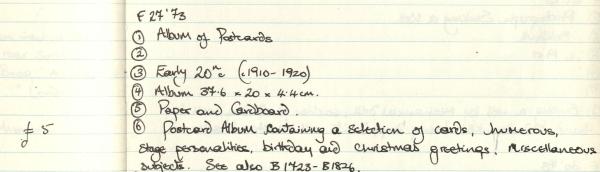 F 27'73
① Album of Postcards
②
③ Early 20thc (c1910-1920)
④ Album 37.6 x 20 x 4.4cm.
⑤ Paper and Cardboard.
£5 ⑥ Postcard Album containing a selection of cards, humerous,
stage personalities, birthday and christmas greetings. Miscellaneous
subjects. See also B1723-B1826.